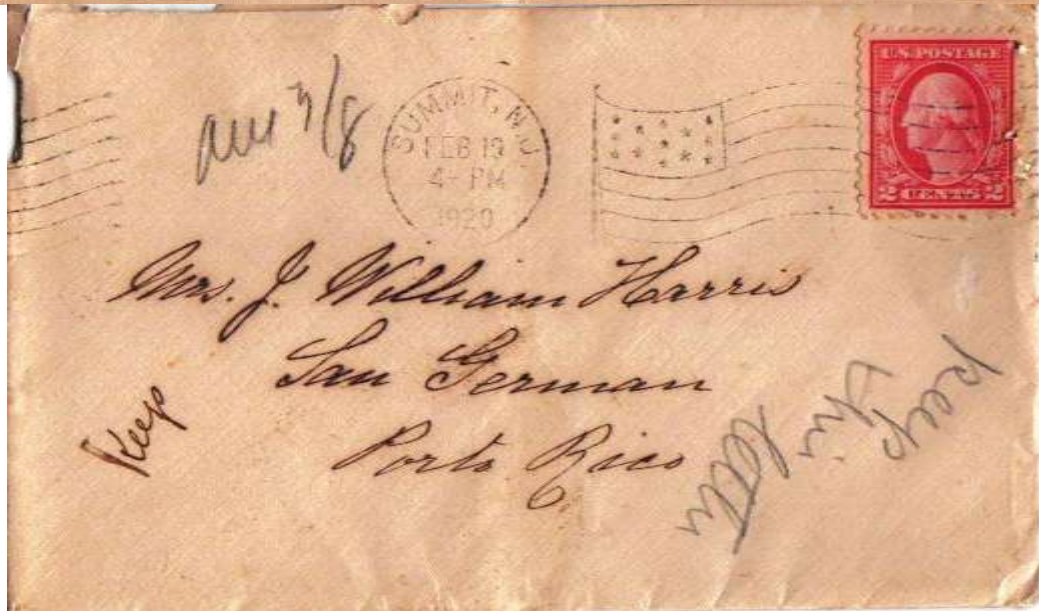 ans 3/8
SUMMIT, N.J.
FEB 19
4- PM
1920
U.S. POSTAGE
2 CENTS 2
Mrs. J. William Harris
San German
Porto Rico
Keep
Keep
this letter